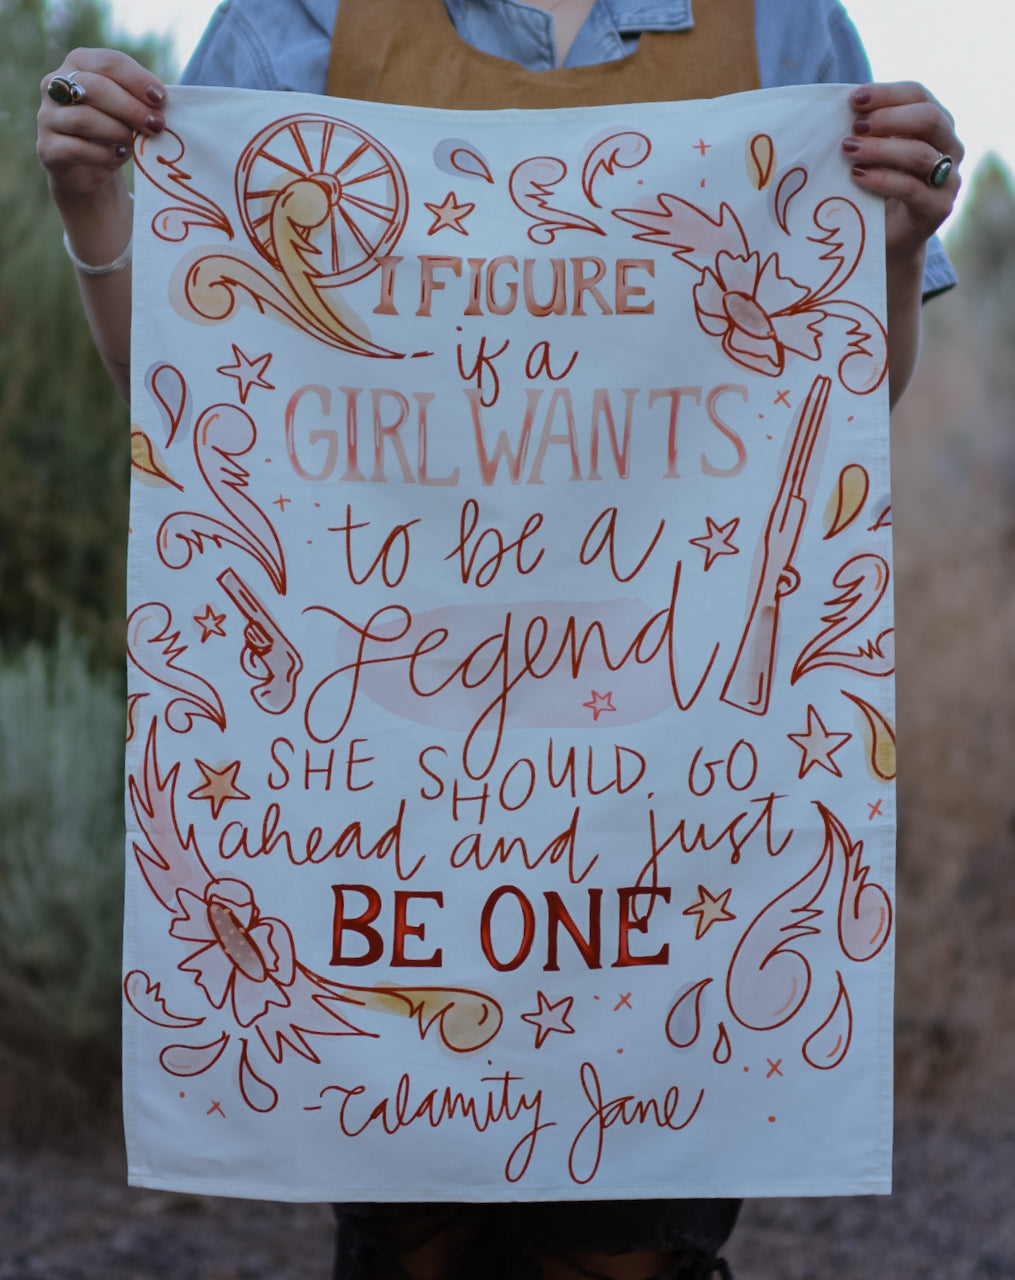 I FIGURE
- if a
GIRL WANTS
to be a
Legend
SHE SHOULD. GO
ahead and just
BE ONE
- Calamity Jane